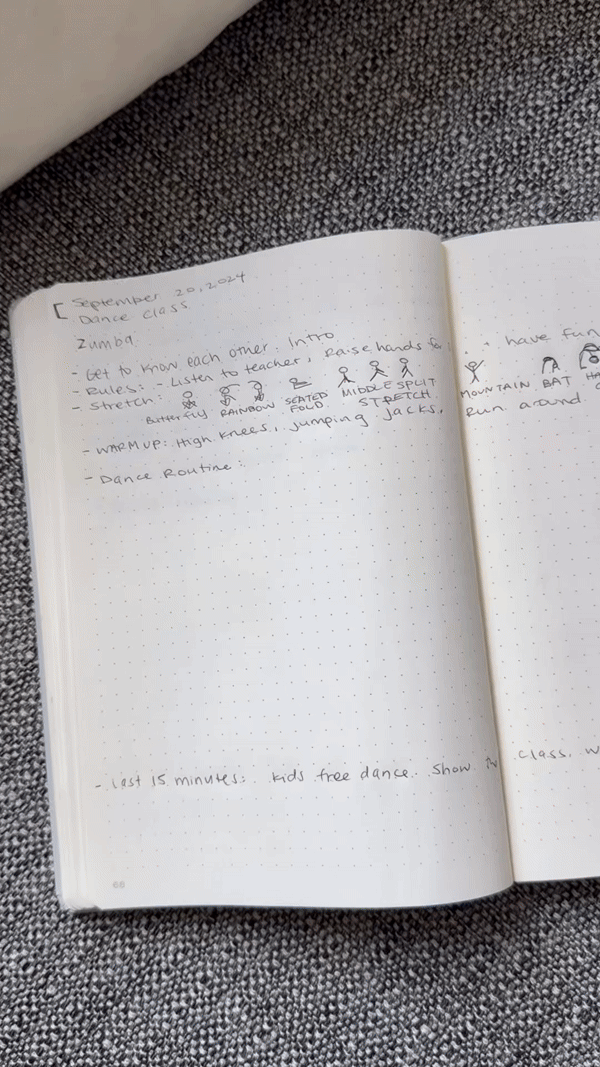 September 20, 2024
Dance Class
Zumba
- Get to know each other. Intro
- Rules: - Listen to teacher, Raise hands have fun
- Stretch: Butterfly RAINBOW SEATED FOLD MIDDLE SPLIT STRETCH MOUNTAIN BAT
- WARM UP: High Knees, jumping jacks, Run around
- Dance Routine:
- Last 15 minutes: kids free dance. Show class.
66